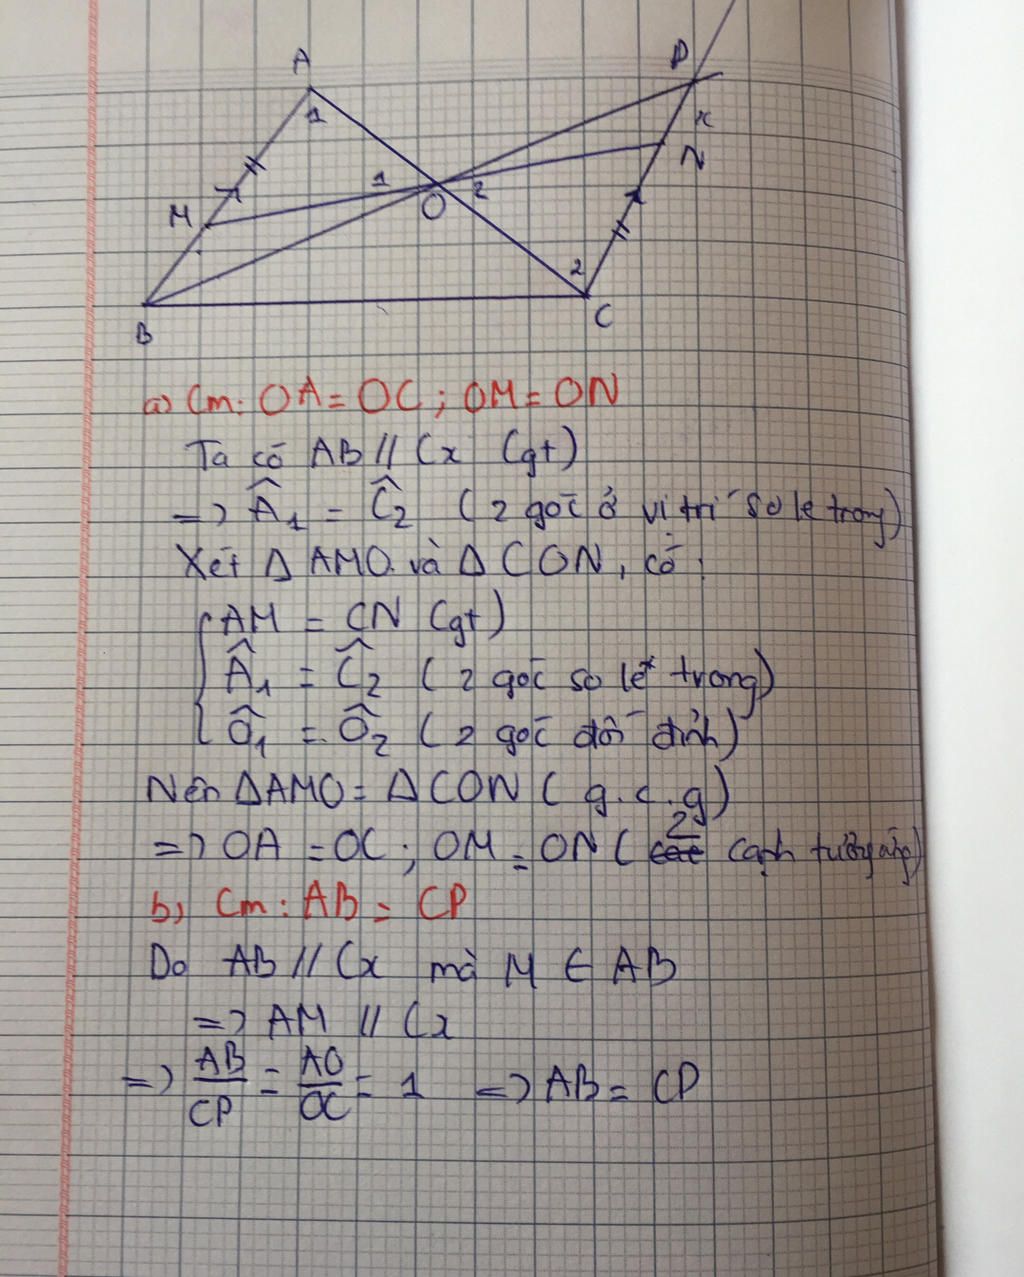 A
P
1
x
N
M
1
O
2
2
B
C
a) Cm: OA = OC ; OM = ON
Ta có AB // Cx (gt)
=> Â₁ = Ĉ₂ ( 2 góc ở vị trí so le trong)
Xét Δ AMO và Δ CON, có :
AM = CN (gt)
Â₁ = Ĉ₂ ( 2 góc so le trong)
Ô₁ = Ô₂ ( 2 góc đối đỉnh)
Nên ΔAMO = ΔCON ( g.c.g)
=> OA = OC ; OM = ON ( 2 cạnh tương ứng)
b) Cm : AB = CP
Do AB // Cx mà M ∈ AB
=> AM // Cx
=> AB/CP = AO/OC = 1 => AB = CP